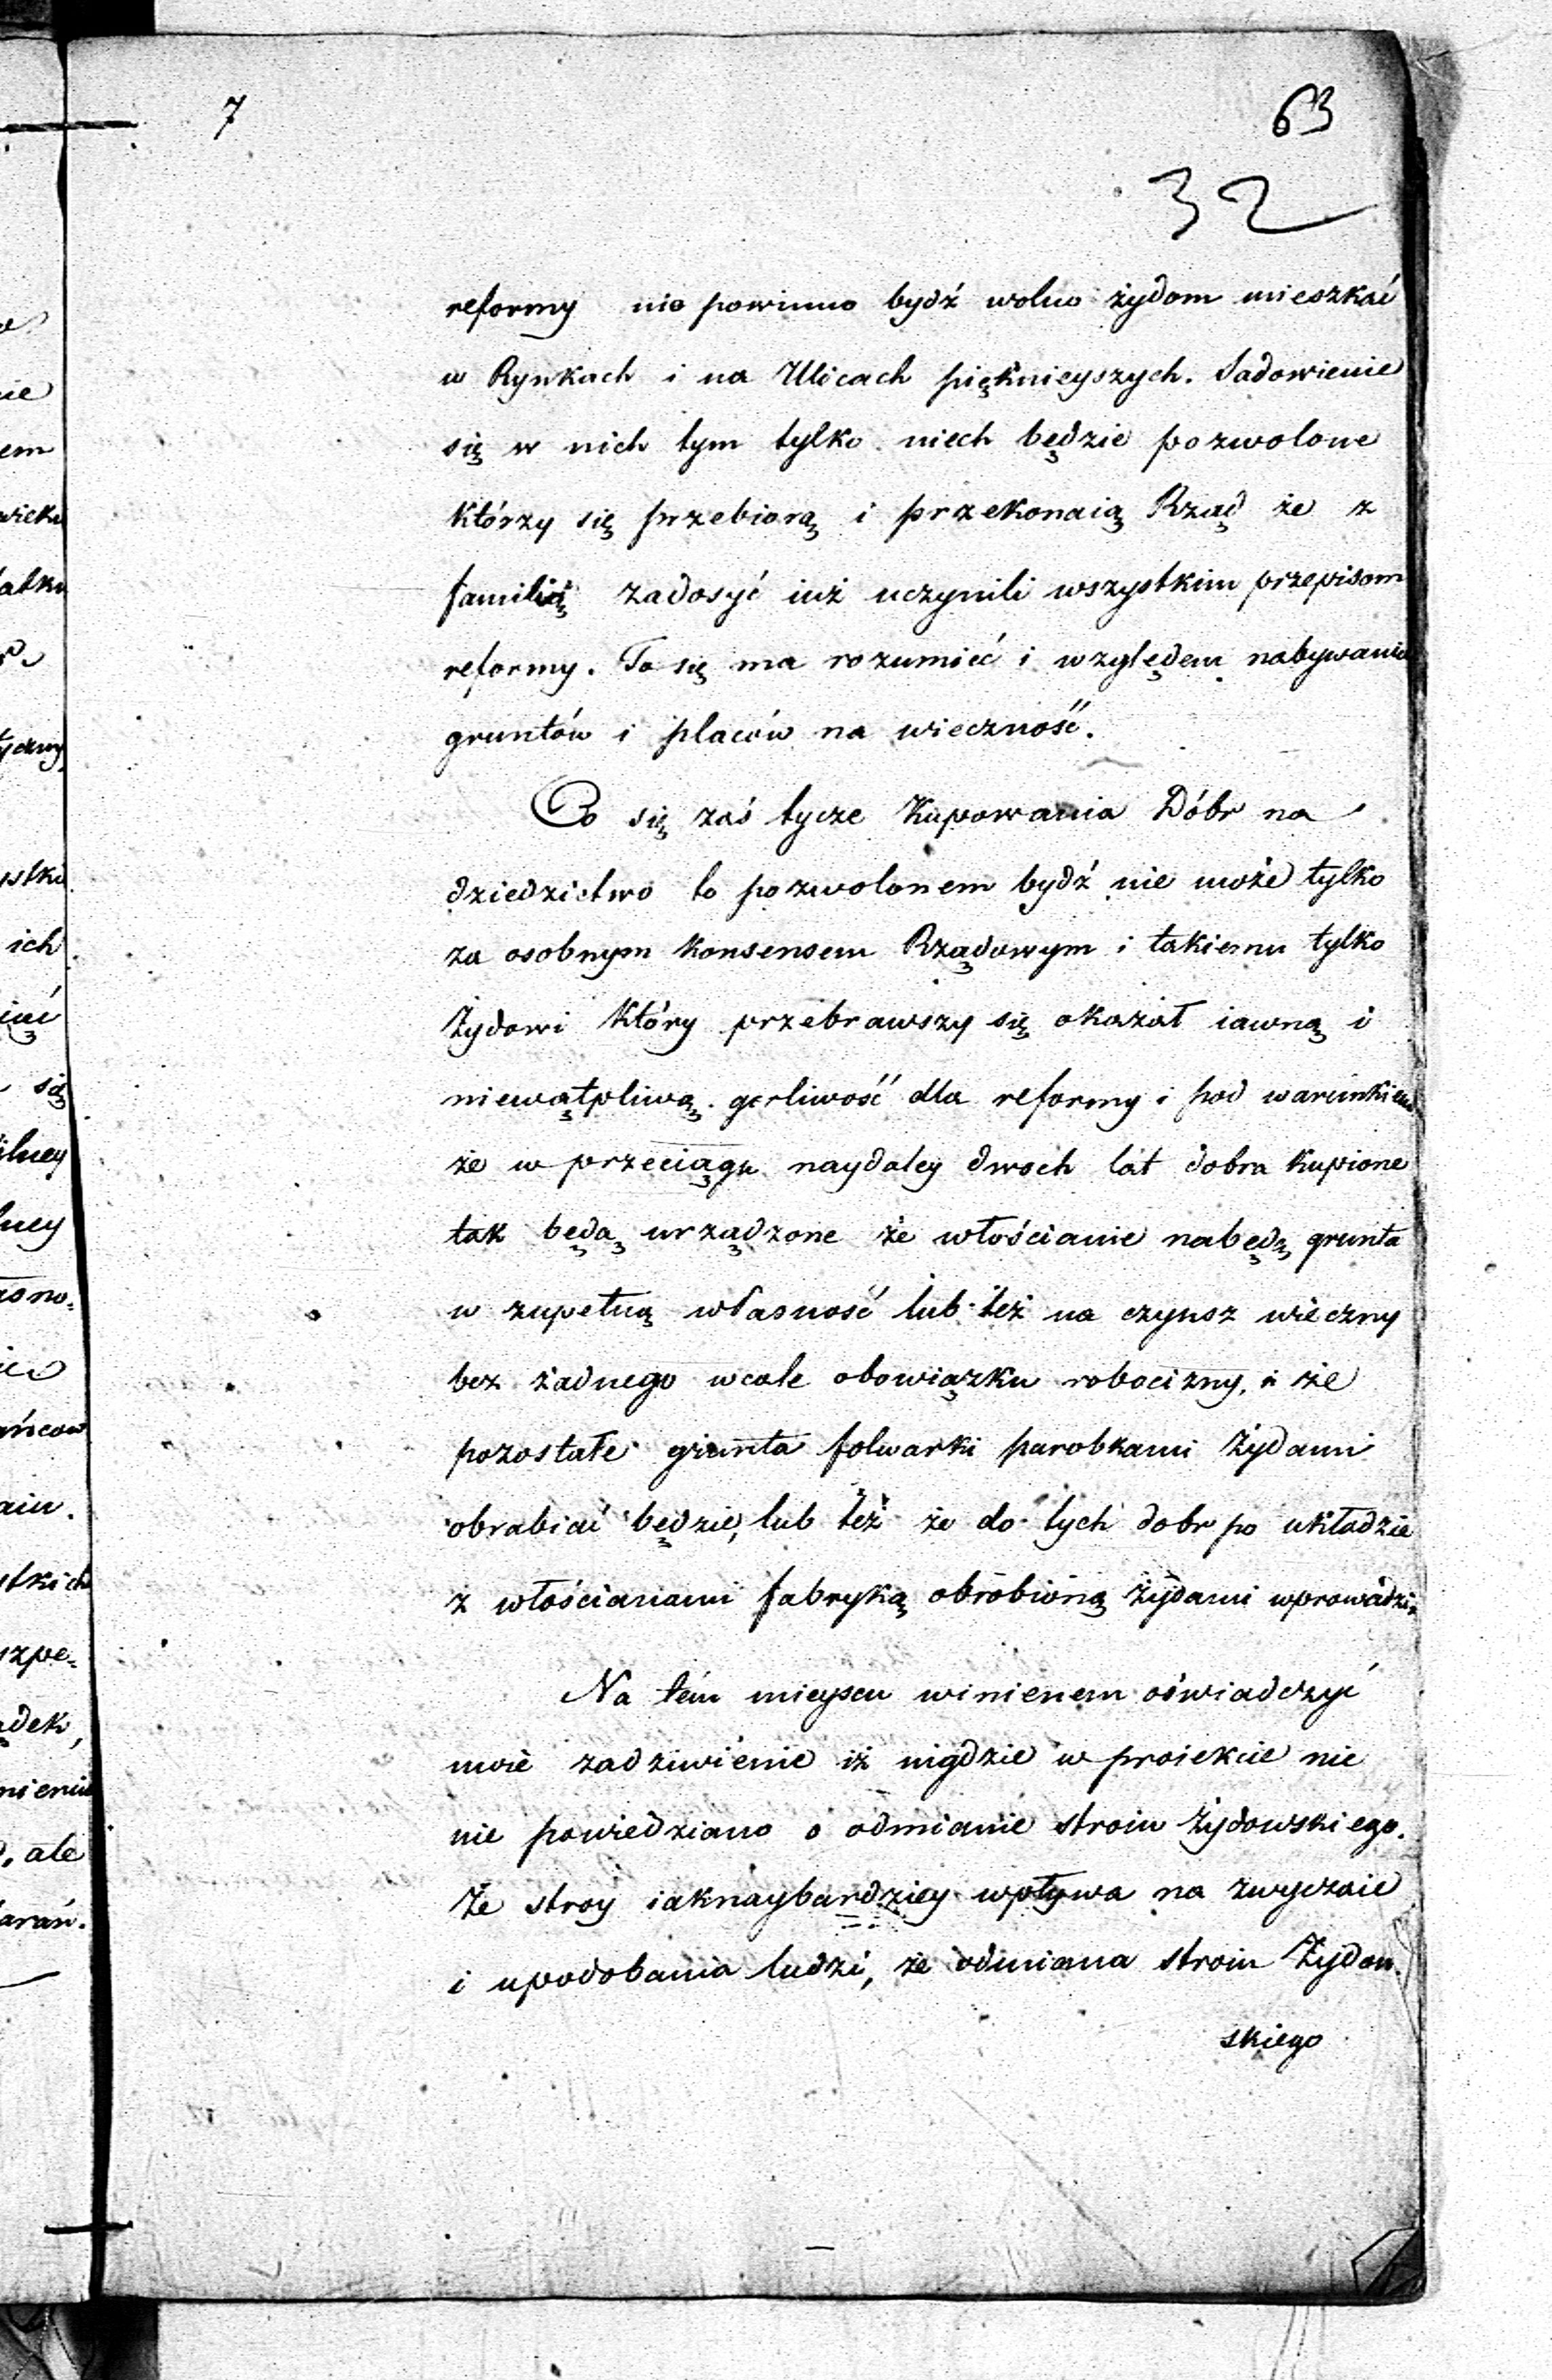 7
63
32
reformy nie powinno bydź wolno żydom mieszkać
w Rynkach i na Ulicach pięknieyszych. Sadowienie
się w nich tym tylko niech będzie pozwolone
którzy się przebiorą i przekonaią Rząd że z
familią zadosyć iuż uczynili wszystkim przepisom
reformy. To się ma rozumieć i względem nabywania
gruntów i placów na wieczność.
Co się zaś tycze Kupowania Dóbr na
dziedzictwo to pozwolonem bydź nie może tylko
za osobnym Konsensem Rządowym i takiemu tylko
Żydowi Który przebrawszy się okazał iawną i
niewątpliwą gorliwość dla reformy i pod warunkiem
że w przeciągu naydaley dwoch lat dobra Kupione
tak będą urządzone że włościanie nabędą grunta
w zupełną własność lub też na czynsz wieczny
bez żadnego wcale obowiązku robocizny, i że
pozostałe grunta folwarki parobkami Żydami
obrabiać będzie, lub też że do tych dobr po układzie
z włościanami fabrykę obrobioną Żydami wprowadzi.
Na tém mieyscu winienem oświadczyć
moie zadziwienie iż nigdzie w proiekcie nic
nie powiedziano o odmianie stroiu Żydowskiego.
Że stroy iaknaybardziey wpływa na zwyczaie
i upodobania ludzi, że odmiana stroiu Żydow
skiego
ich
ale